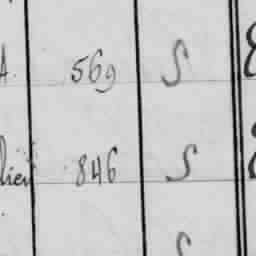 A. 569 S
lieu 846 S
S